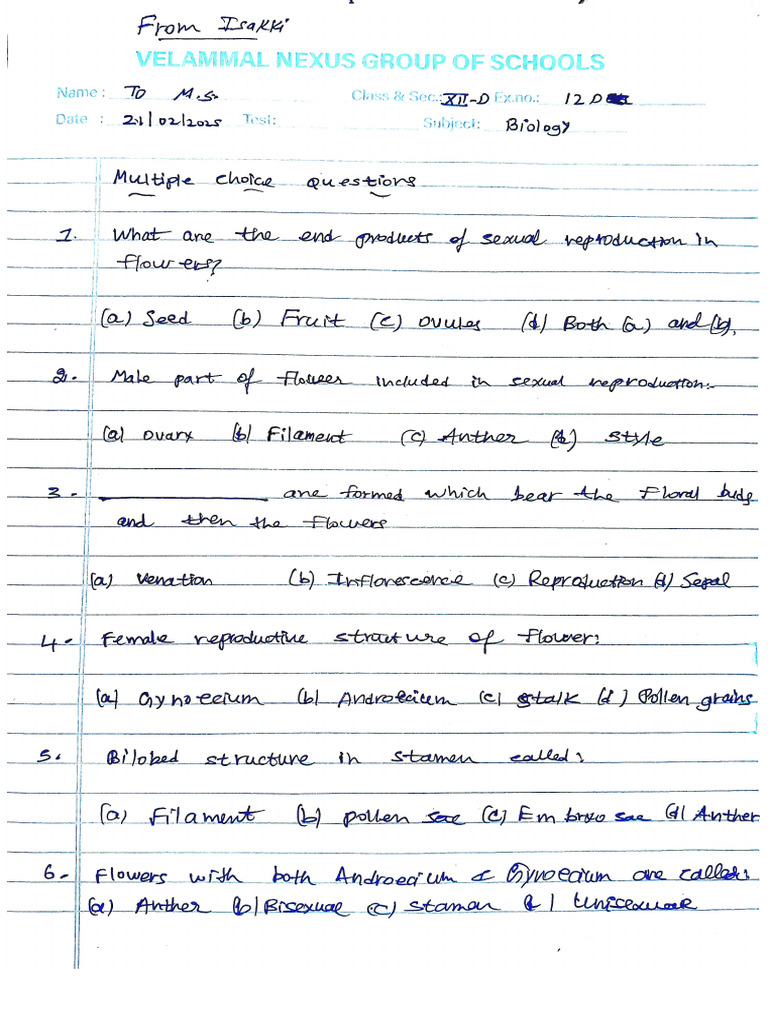 From Isakki
VELAMMAL NEXUS GROUP OF SCHOOLS
Name : To M.S. Class & Sec.: XII-D Ex.no.: 12 D
Date : 21/02/2025 Test: Subject: Biology
Multiple choice questions
1. What are the end products of sexual reproduction in
flowers?
(a) Seed (b) Fruit (c) ovules (d) Both (a) and (b).
2. Male part of flower included in sexual reproduction:-
(a) ovary (b) Filament (c) Anther (d) style
3. ____________ are formed which bear the floral buds
and then the flowers
(a) venation (b) Inflorescence (c) Reproduction (d) Sepal
4. Female reproductive structure of flower:
(a) Gynoecium (b) Androecium (c) stalk (d) Pollen grains
5. Bilobed structure in stamen called:
(a) Filament (b) pollen sac (c) Embryo sac (d) Anther
6. Flowers with both Androecium & Gynoecium are called:
(a) Anther (b) Bisexual (c) Stamen (d) Unisexual